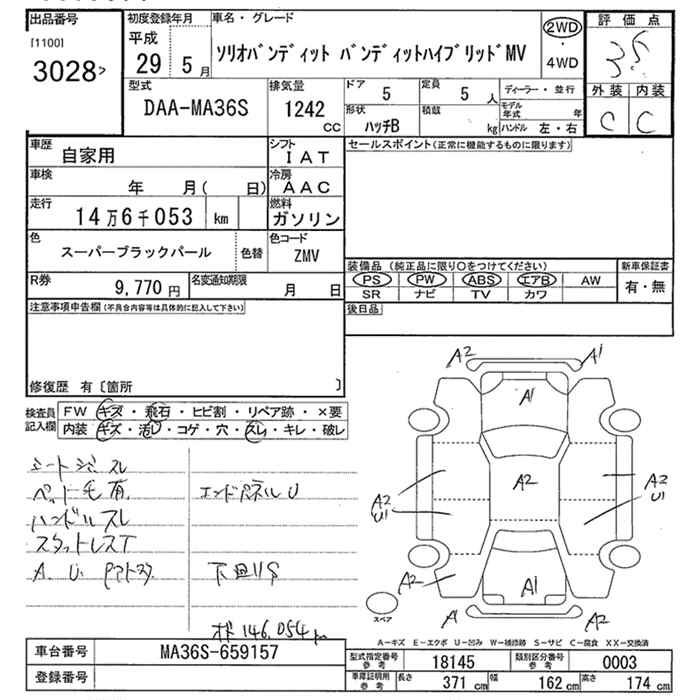 出品番号
[1100]
3028>
初度登録年月
平成
29 5月
車名・グレード
ソリオバンディット バンディットハイブリッドMV
2WD
・
4WD
評価点
3.5
外装 内装
C C
型式
DAA-MA36S
排気量
1242
CC
ドア 5
定員 5 人
形状 ハッチB
積載 kg
ディーラー・並行
モデル年式 年
ハンドル 左・右
車歴 自家用
シフト IAT
車検 年 月( 日)
冷房 AAC
走行 14万6千053 km
燃料 ガソリン
色 スーパーブラックパール
色替
色コード ZMV
R券 9,770 円
名変通知期限 月 日
セールスポイント(正常に機能するものに限ります)
装備品 (純正品に限り○をつけてください)
新車保証書
PS PW ABS エアB AW
有・無
SR ナビ TV カワ
後日品
注意事項申告欄(不具合内容等は具体的に記入して下さい)
修復歴 有〔箇所 〕
検査員記入欄
FW キズ・飛石・ヒビ割・リペア跡・×要
内装 キズ・汚レ・コゲ・穴・スレ・キレ・破レ
ペット毛有
エンドパネルU
ハンドルスレ
スタットレスT
A.U.
下回リS
オド146,054km
A2 A1
A1
A2
A2 U1
A2 U1
A2
A1
A1 A2
スペア
A-キズ E-エクボ U-凹み W-補修跡 S-サビ C-腐食 XX-交換済
車台番号 MA36S-659157
登録番号
型式指定番号 参考 18145
類別区分番号 参考 0003
車庫証明用 参考 長さ 371 cm 幅 162 cm 高さ 174 cm